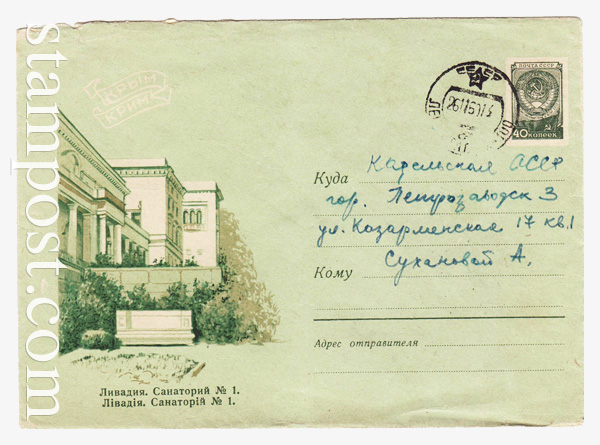 stampost.com
КРЫМ
КРИМ
ПОЧТА СССР
40 КОПЕЕК
Куда Карельская АССР
гор. Петрозаводск 3
ул. Казарменская 17 кв. 1
Кому Сухановой А.
Адрес отправителя
Ливадия. Санаторий № 1.
Лівадія. Санаторій № 1.